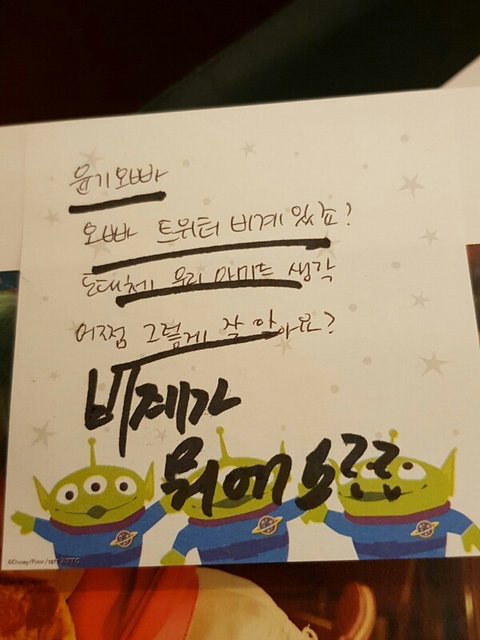 윤기오빠
오빠 트위터 비계 있죠?
도대체 우리 아미들 생각
어쩜 그렇게 잘 알아요?
비계가
뭐에요??
©Disney/Pixar